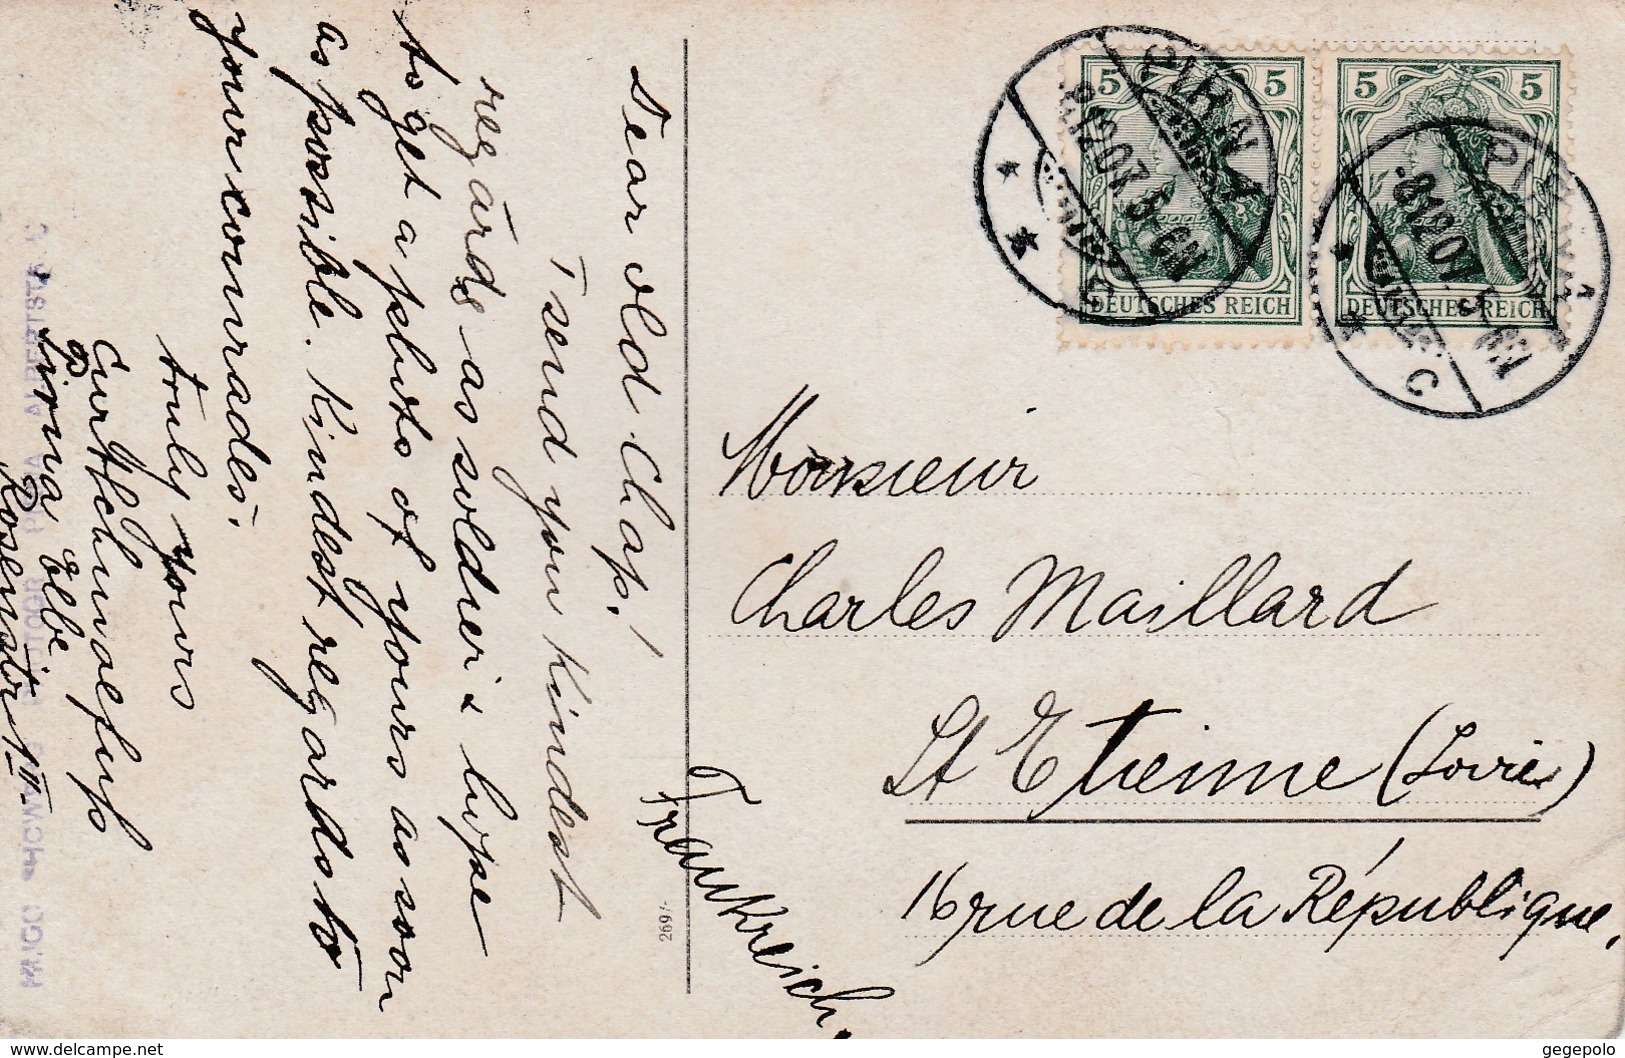 Dear old Chap!
I send you kindest
regards as soldier i hope
to get a photo of yours as soon
as possible. Kindest regards to
your comrades.
truly yours
Curt
Pirna Elbe
Rosenstr.
5 5
DEUTSCHES REICH
5 5
DEUTSCHES REICH
PIRNA
8.12.07. 5-6N
C
PIRNA
8.12.07. 5-6N
C
Monsieur
Charles Maillard
St Etienne (Loire)
16 rue de la République,
Frankreich.
269/-
www.delcampe.net
gegepolo